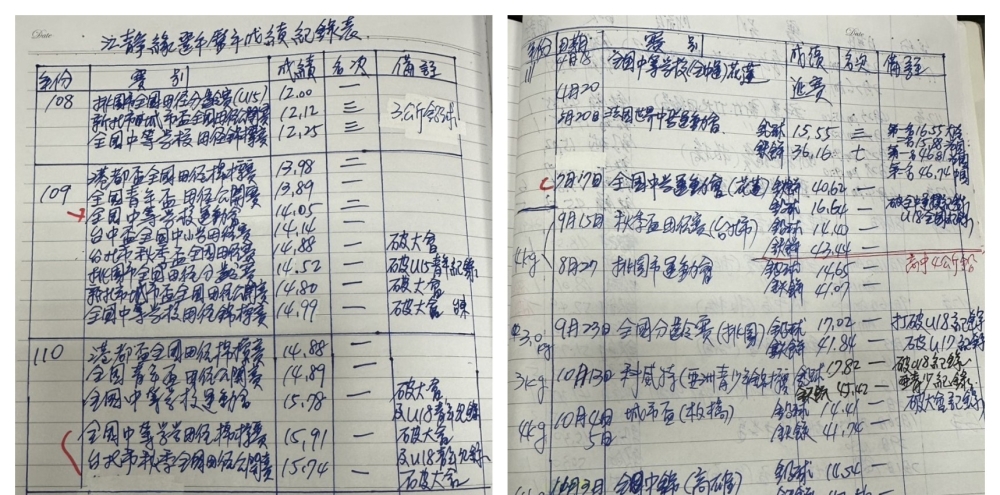 Date
江靜緣歷年歷年成績記錄表
年份 賽別 成績 名次 備註
108 桃園市全國田徑分齡賽(U15) 12.00 一
新北市城市盃全國田徑公開賽 12.12 三 3公斤鉛球
全國中等學校田徑錦標賽 12.25 三
港都盃全國田徑錦標賽 13.98 二
109 全國青年盃田徑公開賽 13.89 一
全國中等學校運動會 14.05 二
台中盃全國中小學田徑賽 14.14 一
台北市秋季盃全國田徑賽 14.88 一 破大會
桃園市全國田徑分齡賽 14.52 一 破U15青年記錄
新北市城市盃全國田徑公開賽 14.80 一 破大會
全國中等學校田徑錦標賽 14.99 一 破大會
110 港都盃全國田徑錦標賽 14.88 一
全國青年盃田徑公開賽 14.89 一
全國中等學校運動會 15.78 一 破大會
及U18青年記錄
全國中等學校田徑錦標賽 15.91 一 破大會
及U18青年記錄
台北市秋季全國田徑公開賽 15.74 一 破大會
Date
年份 日期 賽別 成績 名次 備註
4月18 全國中等學校(全中運)花蓮
4月20 退賽
5月20日 法國世界中學運動會 鉛球 15.55 三 第一名16.55
鐵餅 36.16 七
第一名46.74 中國
7月17日 全國中學運動會(花蓮) 鐵餅 40.62 一
鉛球 16.64 一 U18全國
9月15日 秋季盃田徑賽(台北市) 鉛球 14.40 一
4kg 鐵餅 43.44 一
高中4公斤
8月27 桃園市運動會 鉛球 14.65 一
鐵餅 41.07 一
9月23日 全國分齡賽(桃園) 鉛球 17.02 一 打破U18記錄
鐵餅 41.84 一 破U17記錄
3kg 10月13日 科威特(亞洲青少年錦標 鉛球 17.82 一 破U18記錄
鐵餅 45.42
4kg 10月4日 城市盃(板橋) 鉛球 14.41 一 破大會記錄
5日 鐵餅 41.74 一
全國中錦(高雄) 鉛球 14.54 一